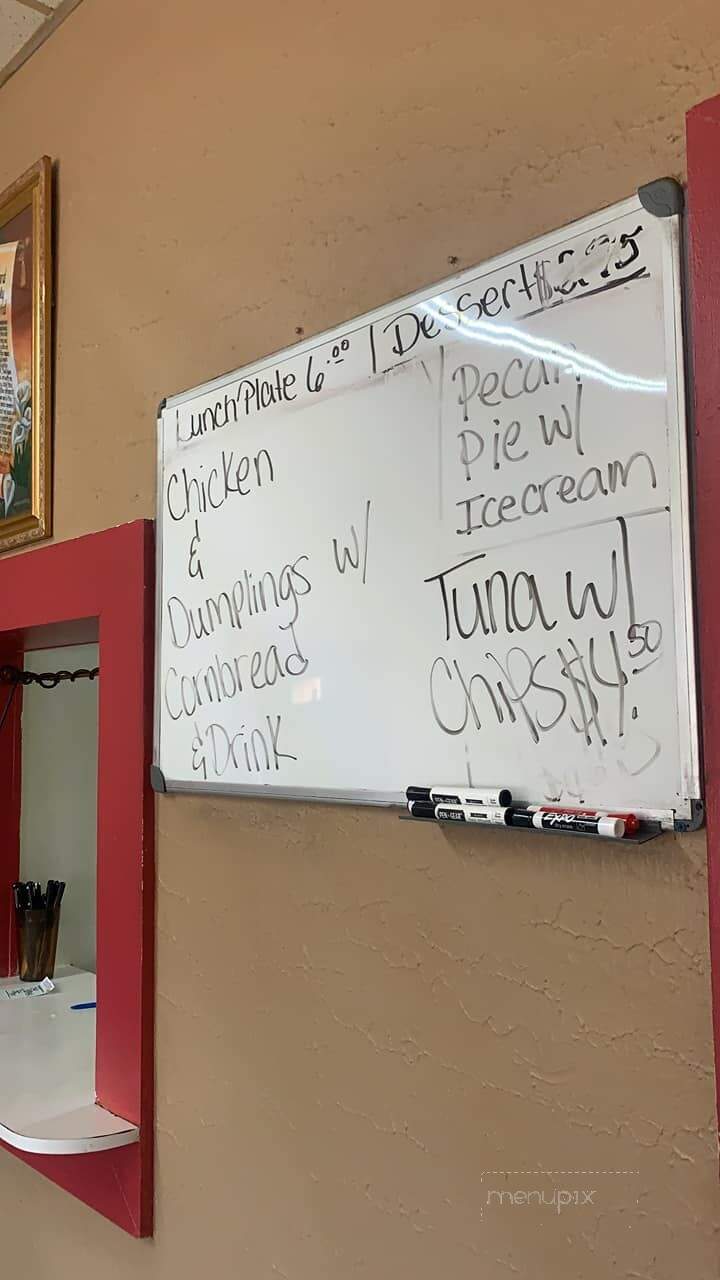 Lunch Plate 6.00 | Dessert
Chicken
&
Dumplings w/
Cornbread
& Drink
Pecan
Pie w/
Icecream
Tuna w/
Chips $4.50
PEN+GEAR
PEN+GEAR
EXPO
menupix